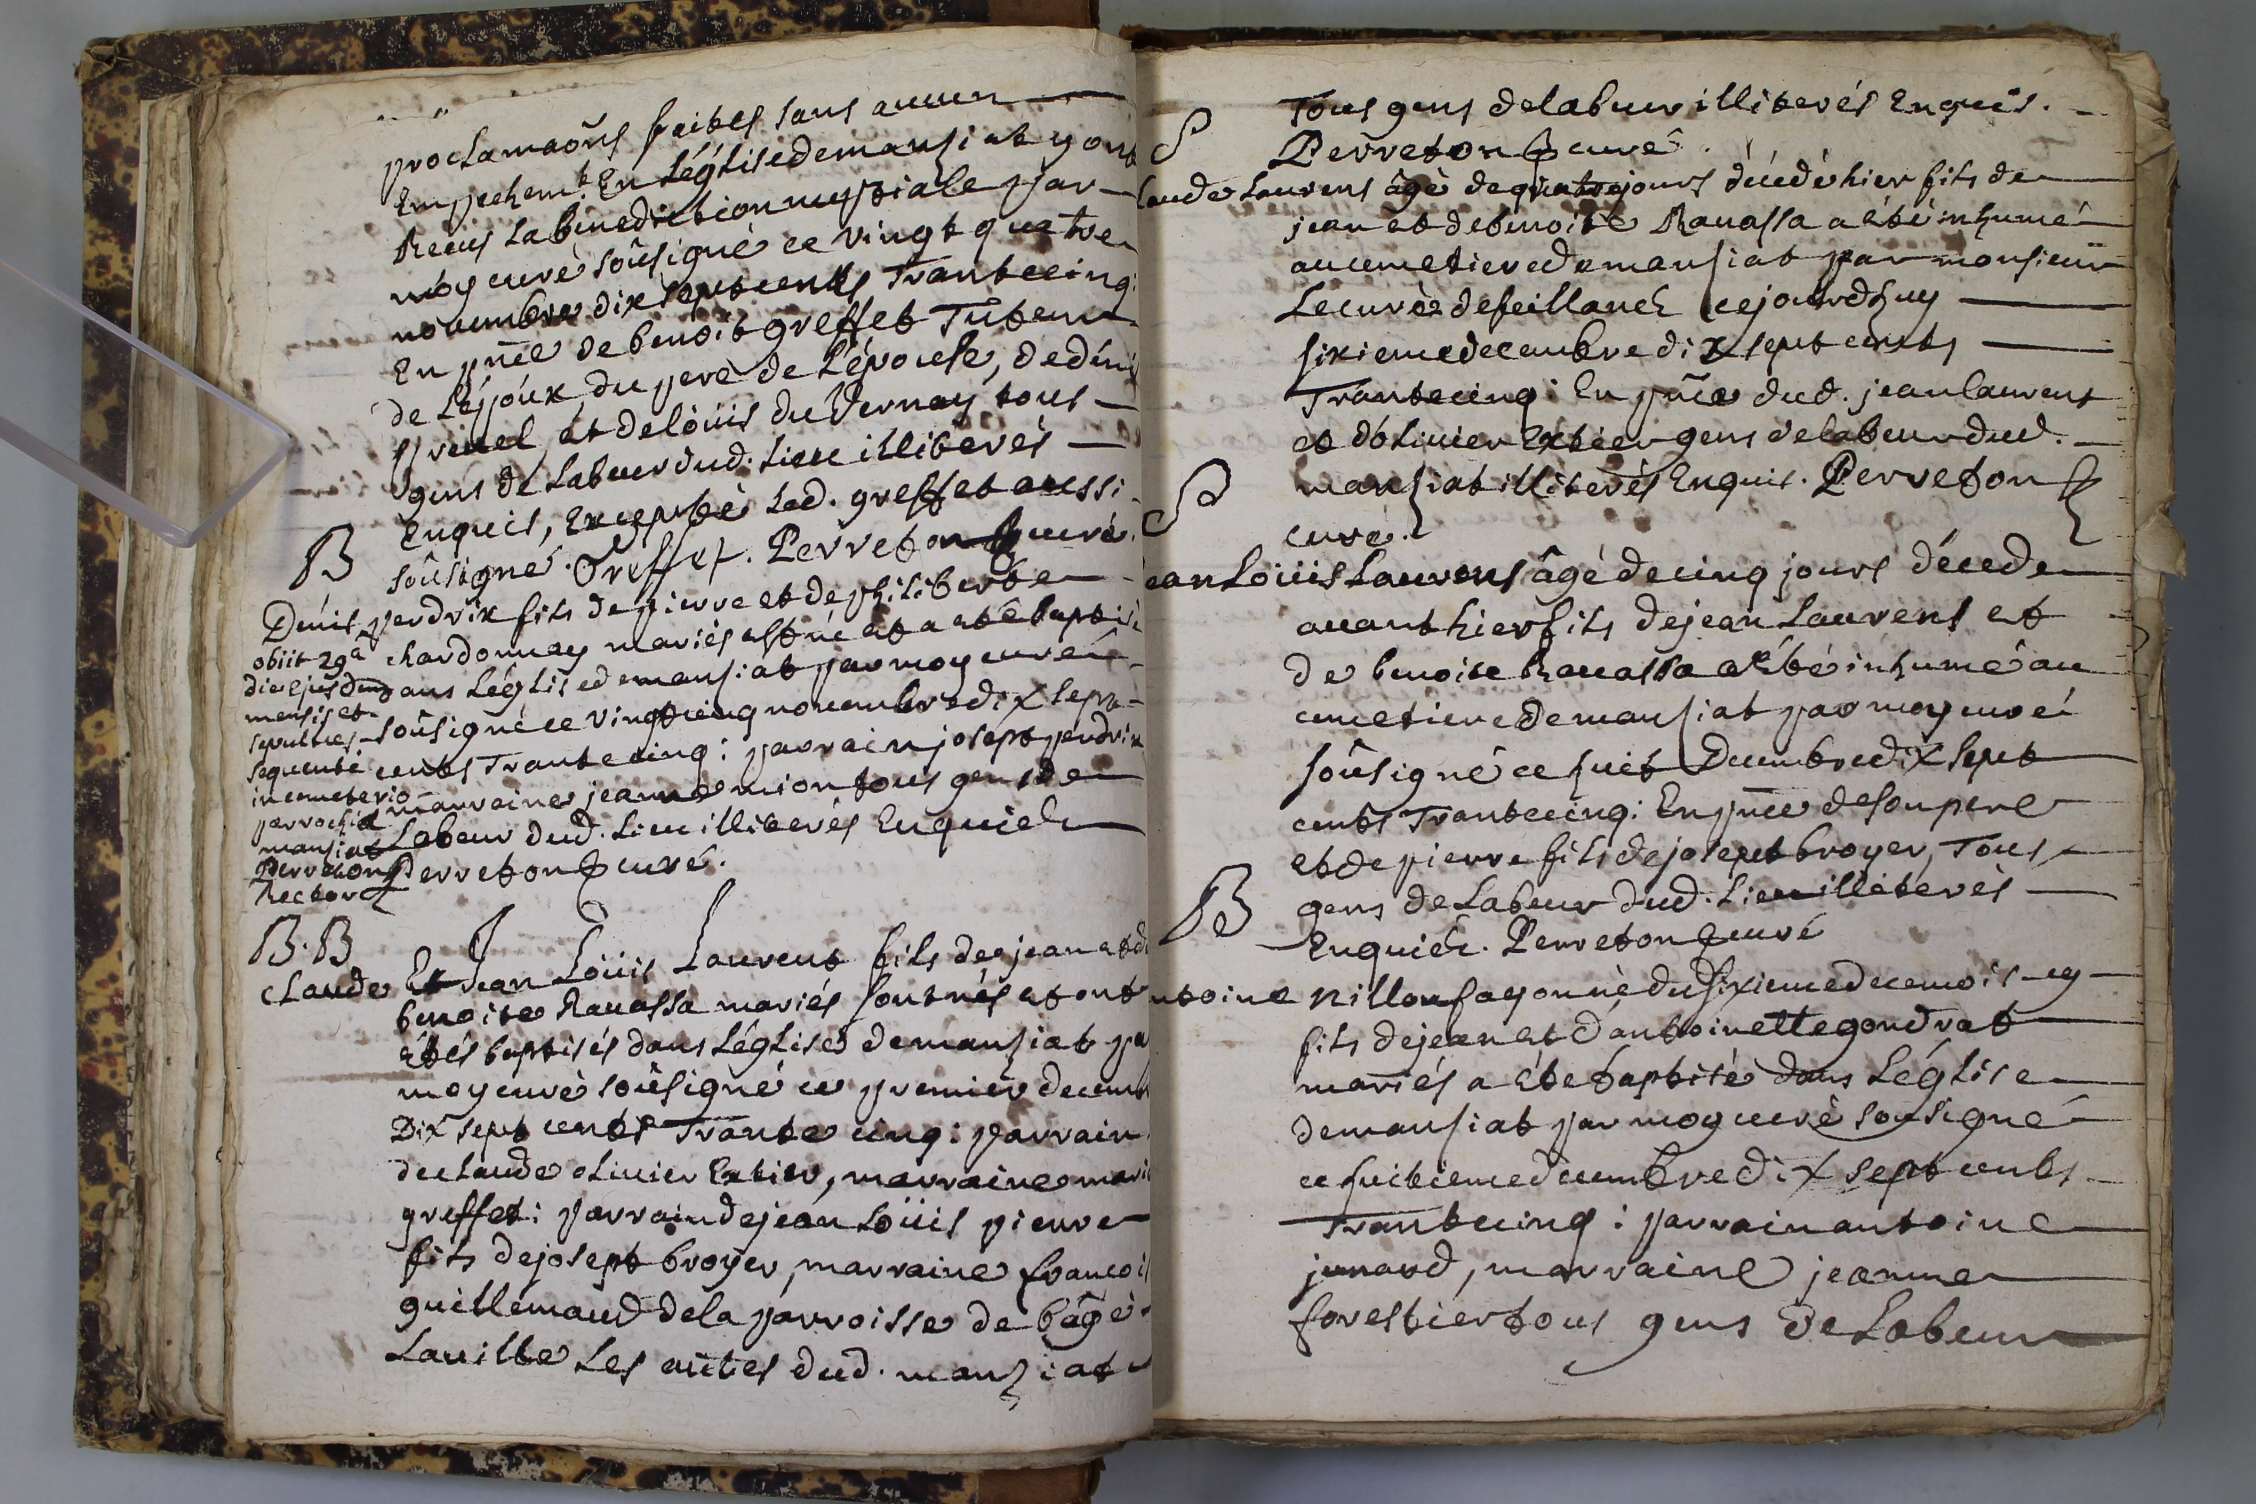 proclamaõns faites sans aucun
Empechemt. En Léglise de manziat y ont
Recus La benediction nuptiale par
moy curé soûsigné ce vingt quatre
novembre dix sept cents Trante cinq:
En pñce de benoit greffet Tuteur
de Léjpoux du pere de L'épouse, de denis
pruel et de loüis du Vernay tous
gens de Labeur dud. Lieu illiterés
Enquis, Excepté Led. greffet aussi
soûsigné. Greffet. Perreton curé.
B
Denis perdrix fils de pierre et de philiberte
chardonnay mariés est né et a eté baptisé
dans Léglise de manziat par moy curé
soûsigné ce vingt cinq novembre dix sept
cents Trante cinq: parrain josept perdrix
marraine jeanne mion tous gens de
Labeur dud. Lieu illiterés Enquis
Perreton curé.
obiit 29a
die ejusdem
mensis et
sepultus
sequenti
in cemeterio
parrochia
manziat
Perreton
Rector
B. B
Claude Et Jean Loüis Laurent fils de jean et de
benoite Rauassa mariés sont nés et ont
étés baptisés dans Léglise de manziat par
moy curé soûsigné ce premier decemb
Dix sept cents Trante cinq: parrain
de claude oliuier Extier, marraine marie
greffet: parrain de jean Loüis pierre
fils de josept broyer, marraine francois
guillemaud de la parroisse de bâgé
Lauille Les autes dud. manziat
Tous gens de labeur illiterés Enquis.
Perreton curé
S
laude Laurens âgé de quatre jours décédé hier fils de
jean et de benoite Rauassa a été inhumé
au cemetiere de manziat par monsieur
Le curé de feillans ce jourdhuy
sixieme decembre dix sept cents
Trante cinq: En pñce dud. jean laurent
et d'oliuier Extier gens de labeur dud.
manziat illiterés Enquis. Perreton
curé.
S
ean Loüis Laurens âgé de cinq jours décede
auant hier fils de jean Laurens et
de benoite Rauassa a été inhumé au
cemetiere de manziat par moy curé
soûsigné ce huit Decembre dix sept
cents Trante cinq: En pñce de son pere
et de pierre fils de josept broyer, Tous
gens de Labeur dud. Lieu illiterés
Enquis. Perreton curé
B
ntoine pillon fayon né du sixieme de ce mois cy
fils de jean et d'antoinette gondrat
mariés a éte baptisé dans Léglise
de manziat par moy curé sousigné
ce huitieme decembre dix sept cents
Trante cinq: parrain antoine
junard, marraine jeanne
forestier tous gens de Labeur